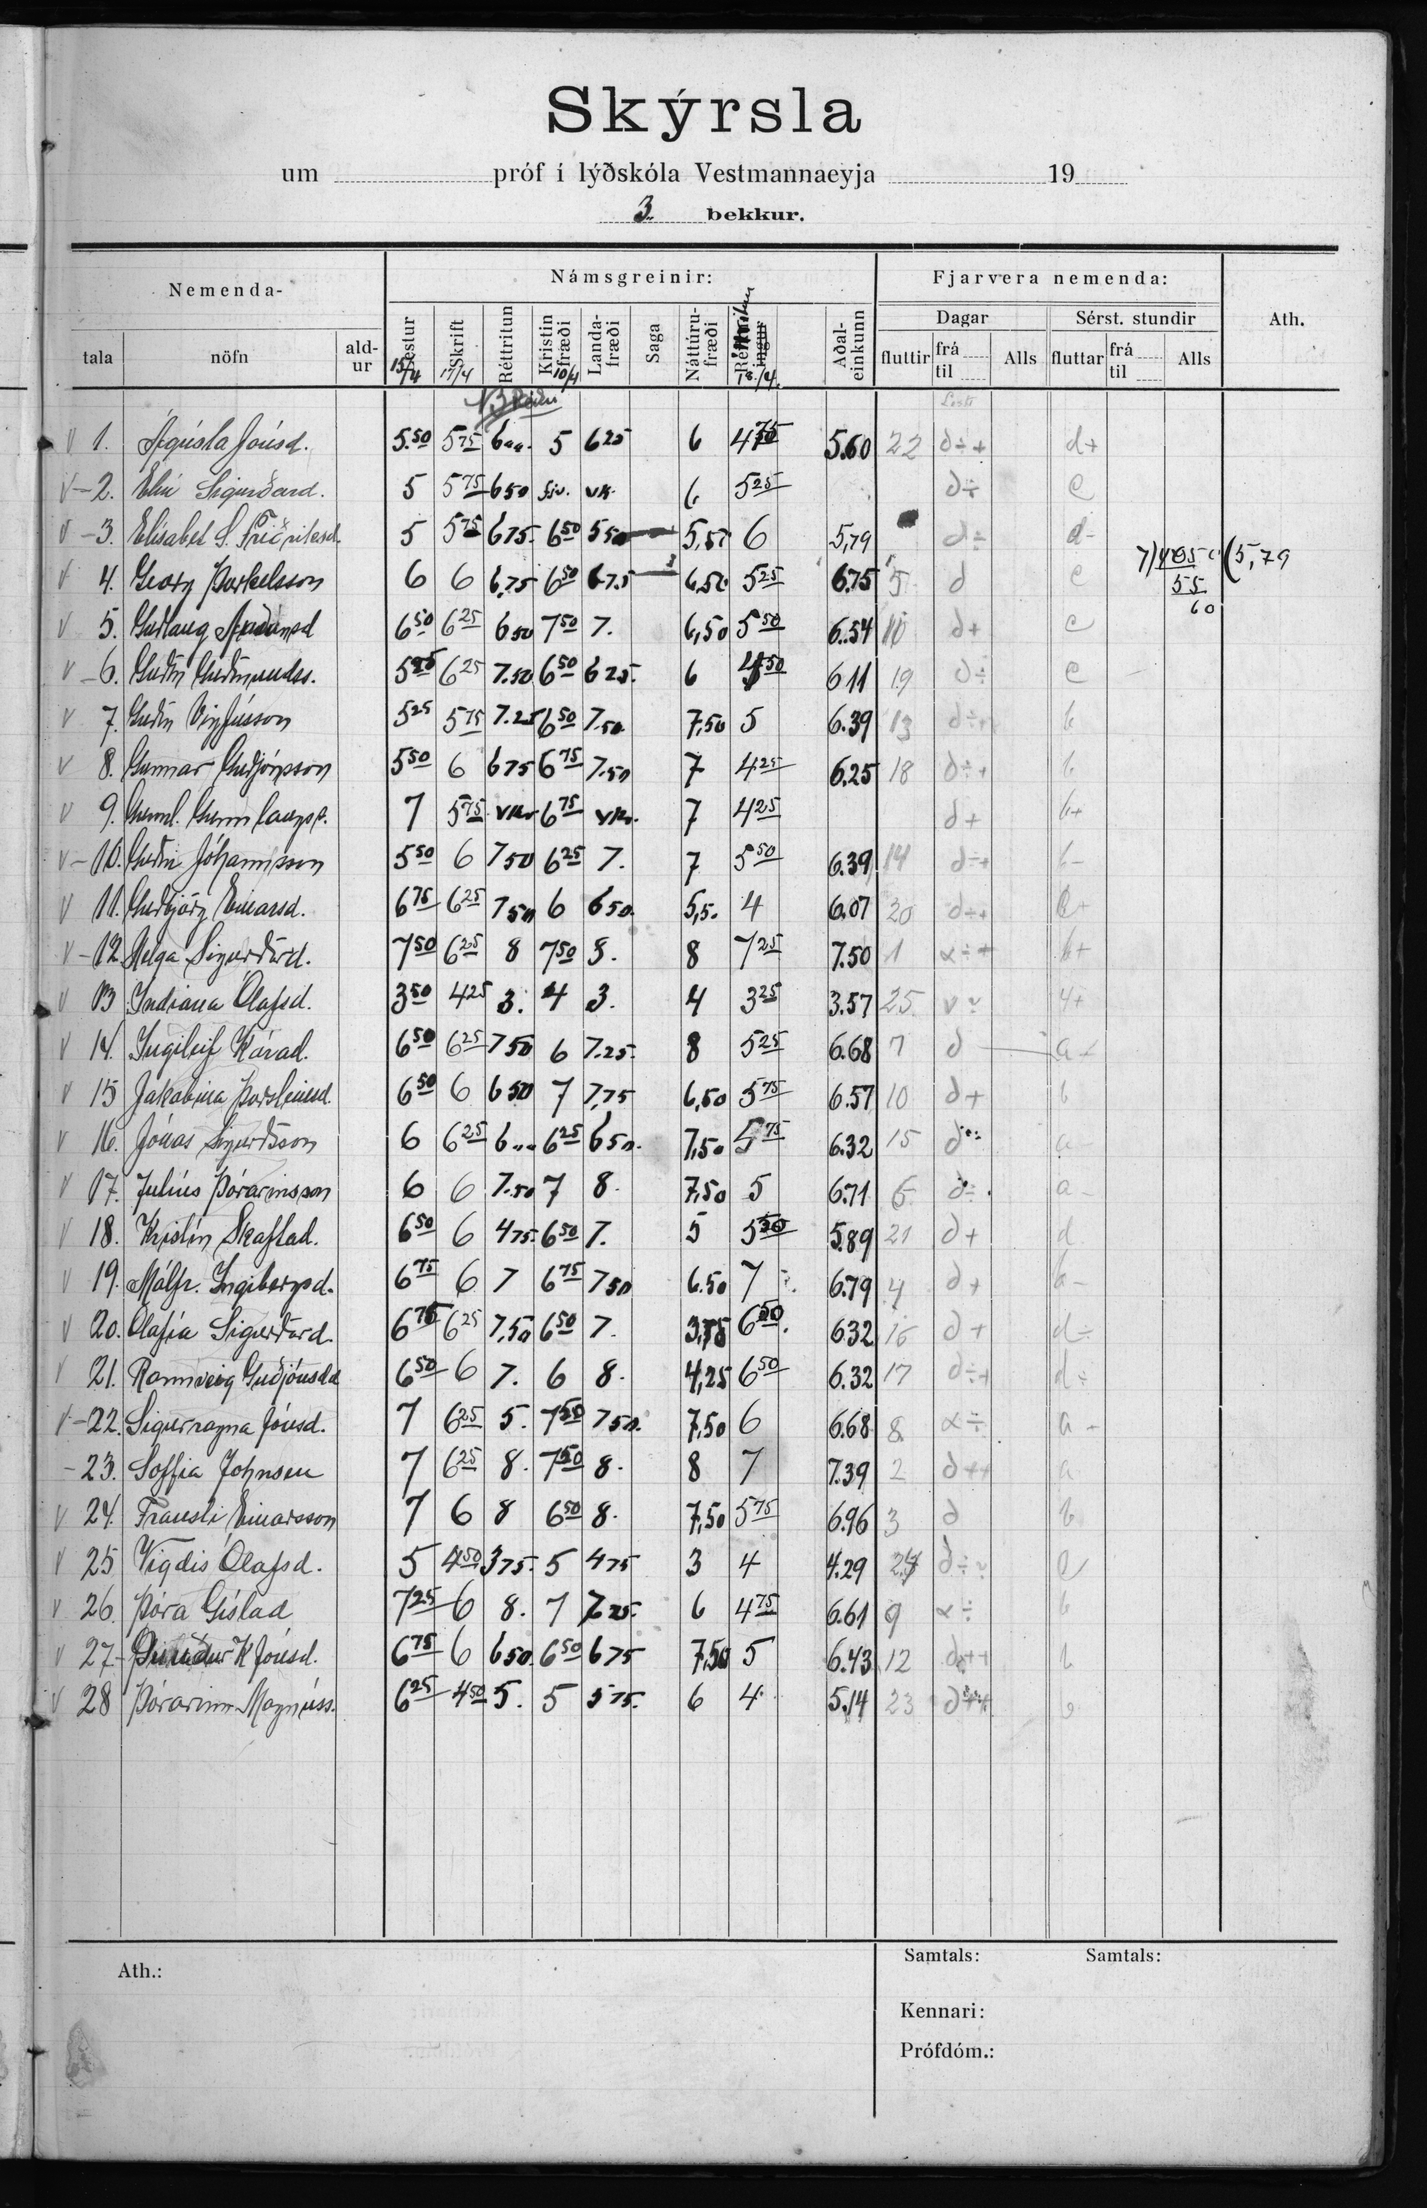 Skýrsla
um próf í lýðskóla Vestmannaeyja 19
3. bekkur.
Nemenda- Námsgreinir: Fjarvera nemenda: Ath.
Dagar Sérst. stundir
tala nöfn ald-ur Lestur 15/4 Skrift 17/4 Réttritun Kristin fræði 10/4 Landa-fræði Saga Náttúru-fræði 18/4. Aðal-einkunn fluttir frá til Alls fluttar frá til Alls
v 1. Ágústa Jónsd. 5.50 575 6 5 625 6 5.60 22 d÷+ d+
v - 2. Elín Sigurðard. 5 575 650 vk. 6 525 d÷ c
v - 3. Elísabet S. Friðriksd. 5 575 675. 650 550 5,50 6 5,79 d÷ d-
7)4050(5,79
55
60
v 4. Georg Þorkelsson 6 6 6,75 650 675 6,50 525 6.75 5 d c
v 5. Guðlaug Auðunsd 650 625 650 750 7. 6,50 550 6.54 d+ c
v - 6. Guðm Guðmundss. 625 7.50 650 625. 6 450 6 11 19 d÷ c
v 7. Guðm Vigfússon 525 575 7.25 650 7.50 7,50 5 6.39 13 d÷+ b
v 8. Gunnar Guðjónsson 550 6 675 675 7.50 7 425 6.25 18 d÷+ b
v 9. Gunnl. Gunnlaugss. 7 575 vk. 675 vk. 7 425 d+ b+
v - 10. Guðm Jóhannsson 550 6 750 625 7. 7 550 6.39 14 d÷+ b-
v 11. Guðbjörg Einarsd. 675 625 750 6 650. 5,5. 4 6.07 20 d÷+ c+
v - 12. Helga Sigurðard. 750 625 8 750 8. 8 725 7.50 1 α÷+ b+
v 13 Indiana Ólafsd. 350 425 3. 4 3. 4 325 3.57 25. v
v 14. Ingileif Kárad. 650 625 750 6 7.25. 8 525 6.68 7 d a-
v 15 Jakobína Þorsteinsd. 650 6 650 7 7,75 6,50 575 6.57 10 d+ b
v 16. Jónas Sigurðsson 6 625 6 625 650. 7,50 575 6.32 15 d÷ a-
v 17. Júlíus Þórarinsson 6 6 7.50 7 8. 7,50 5 6.71 6 d÷ a-
v 18. Kristín Skaftad. 650 6 475. 650 7. 5 550 5.89 21 d+ d
v 19. Málfr. Ingibergsd. 675 6 7 675 750 6.50 7 6.79 4 d+ b-
v 20. Ólafía Sigurðard. 675 625 7,50 650 7. 3,75 650. 632 16 d+ d÷
v 21. Rannveig Guðjónsd 650 6 7. 6 8. 4,25 650 6.32 17 d÷+ d÷
v - 22. Sigurragna Jónsd. 7 625 5. 750 750. 7,50 6 6.68 8. α÷ a-
- 23. Soffía Johnsen 7 625 8. 750 8. 8 7 7.39 2 d++ a
v 24. Trausti Einarsson 7 6 8 650 8. 7,50 575 6.96 3 d b
v 25 Vigdís Ólafsd. 5 450 375. 5 475 3 4 4.29 24 d÷
v 26. Þóra Gíslad 725 6 8. 7 7 25. 6 475 6.61 9 α÷ b
v 27 - Þuríður K Jónsd. 675 6 650. 650 675 7,50 5 6.43 12 d++ b
v 28 Þórarinn Magnúss. 625 450 5. 5 575. 6 4. 5.14 23 d++ b
Ath.: Samtals: Samtals:
Kennari:
Prófdóm.: